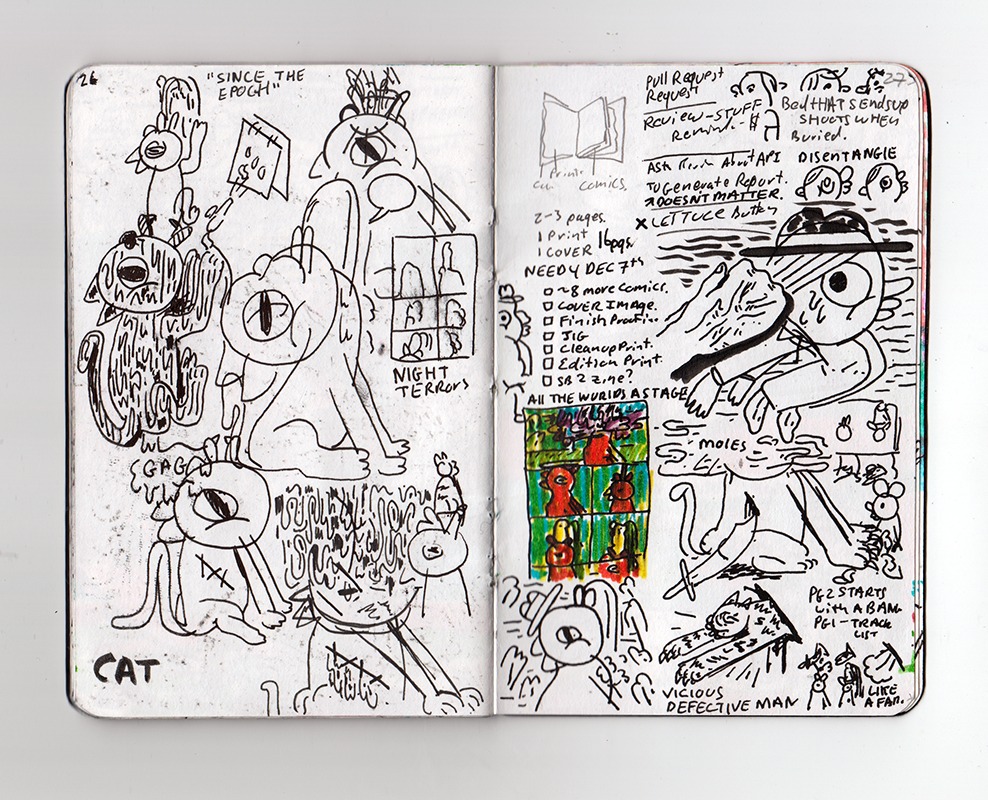 26
"SINCE THE
EPOCH"
NIGHT
TERRORS
GAG
CAT
27
Pull Request
Request
Review-STUFF
Bed THAT SENDS up
SHOOTS WHEN
Buried.
DISENTANGLE
About API
To Generate Report.
DOESN'T MATTER.
X LETTUCE Button
Print
Comics.
2-3 pages.
1 Print
1 COVER 16pgs.
NEED 4 DEC 7th
~8 more Comics.
COVER IMAGE.
Finish
JIG
Cleanup Print.
Edition Print.
SB 2 Zine?
All THE WORLDS A STAGE
MOLES
PG2 STARTS
With A BANG
PG1-TRACK
LIST
VICIOUS
DEFECTIVE MAN
LIKE
A FAN.